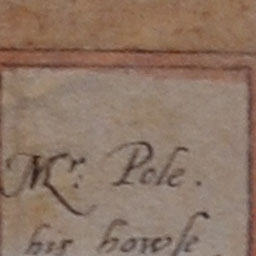 Mr. Pole.
his howse